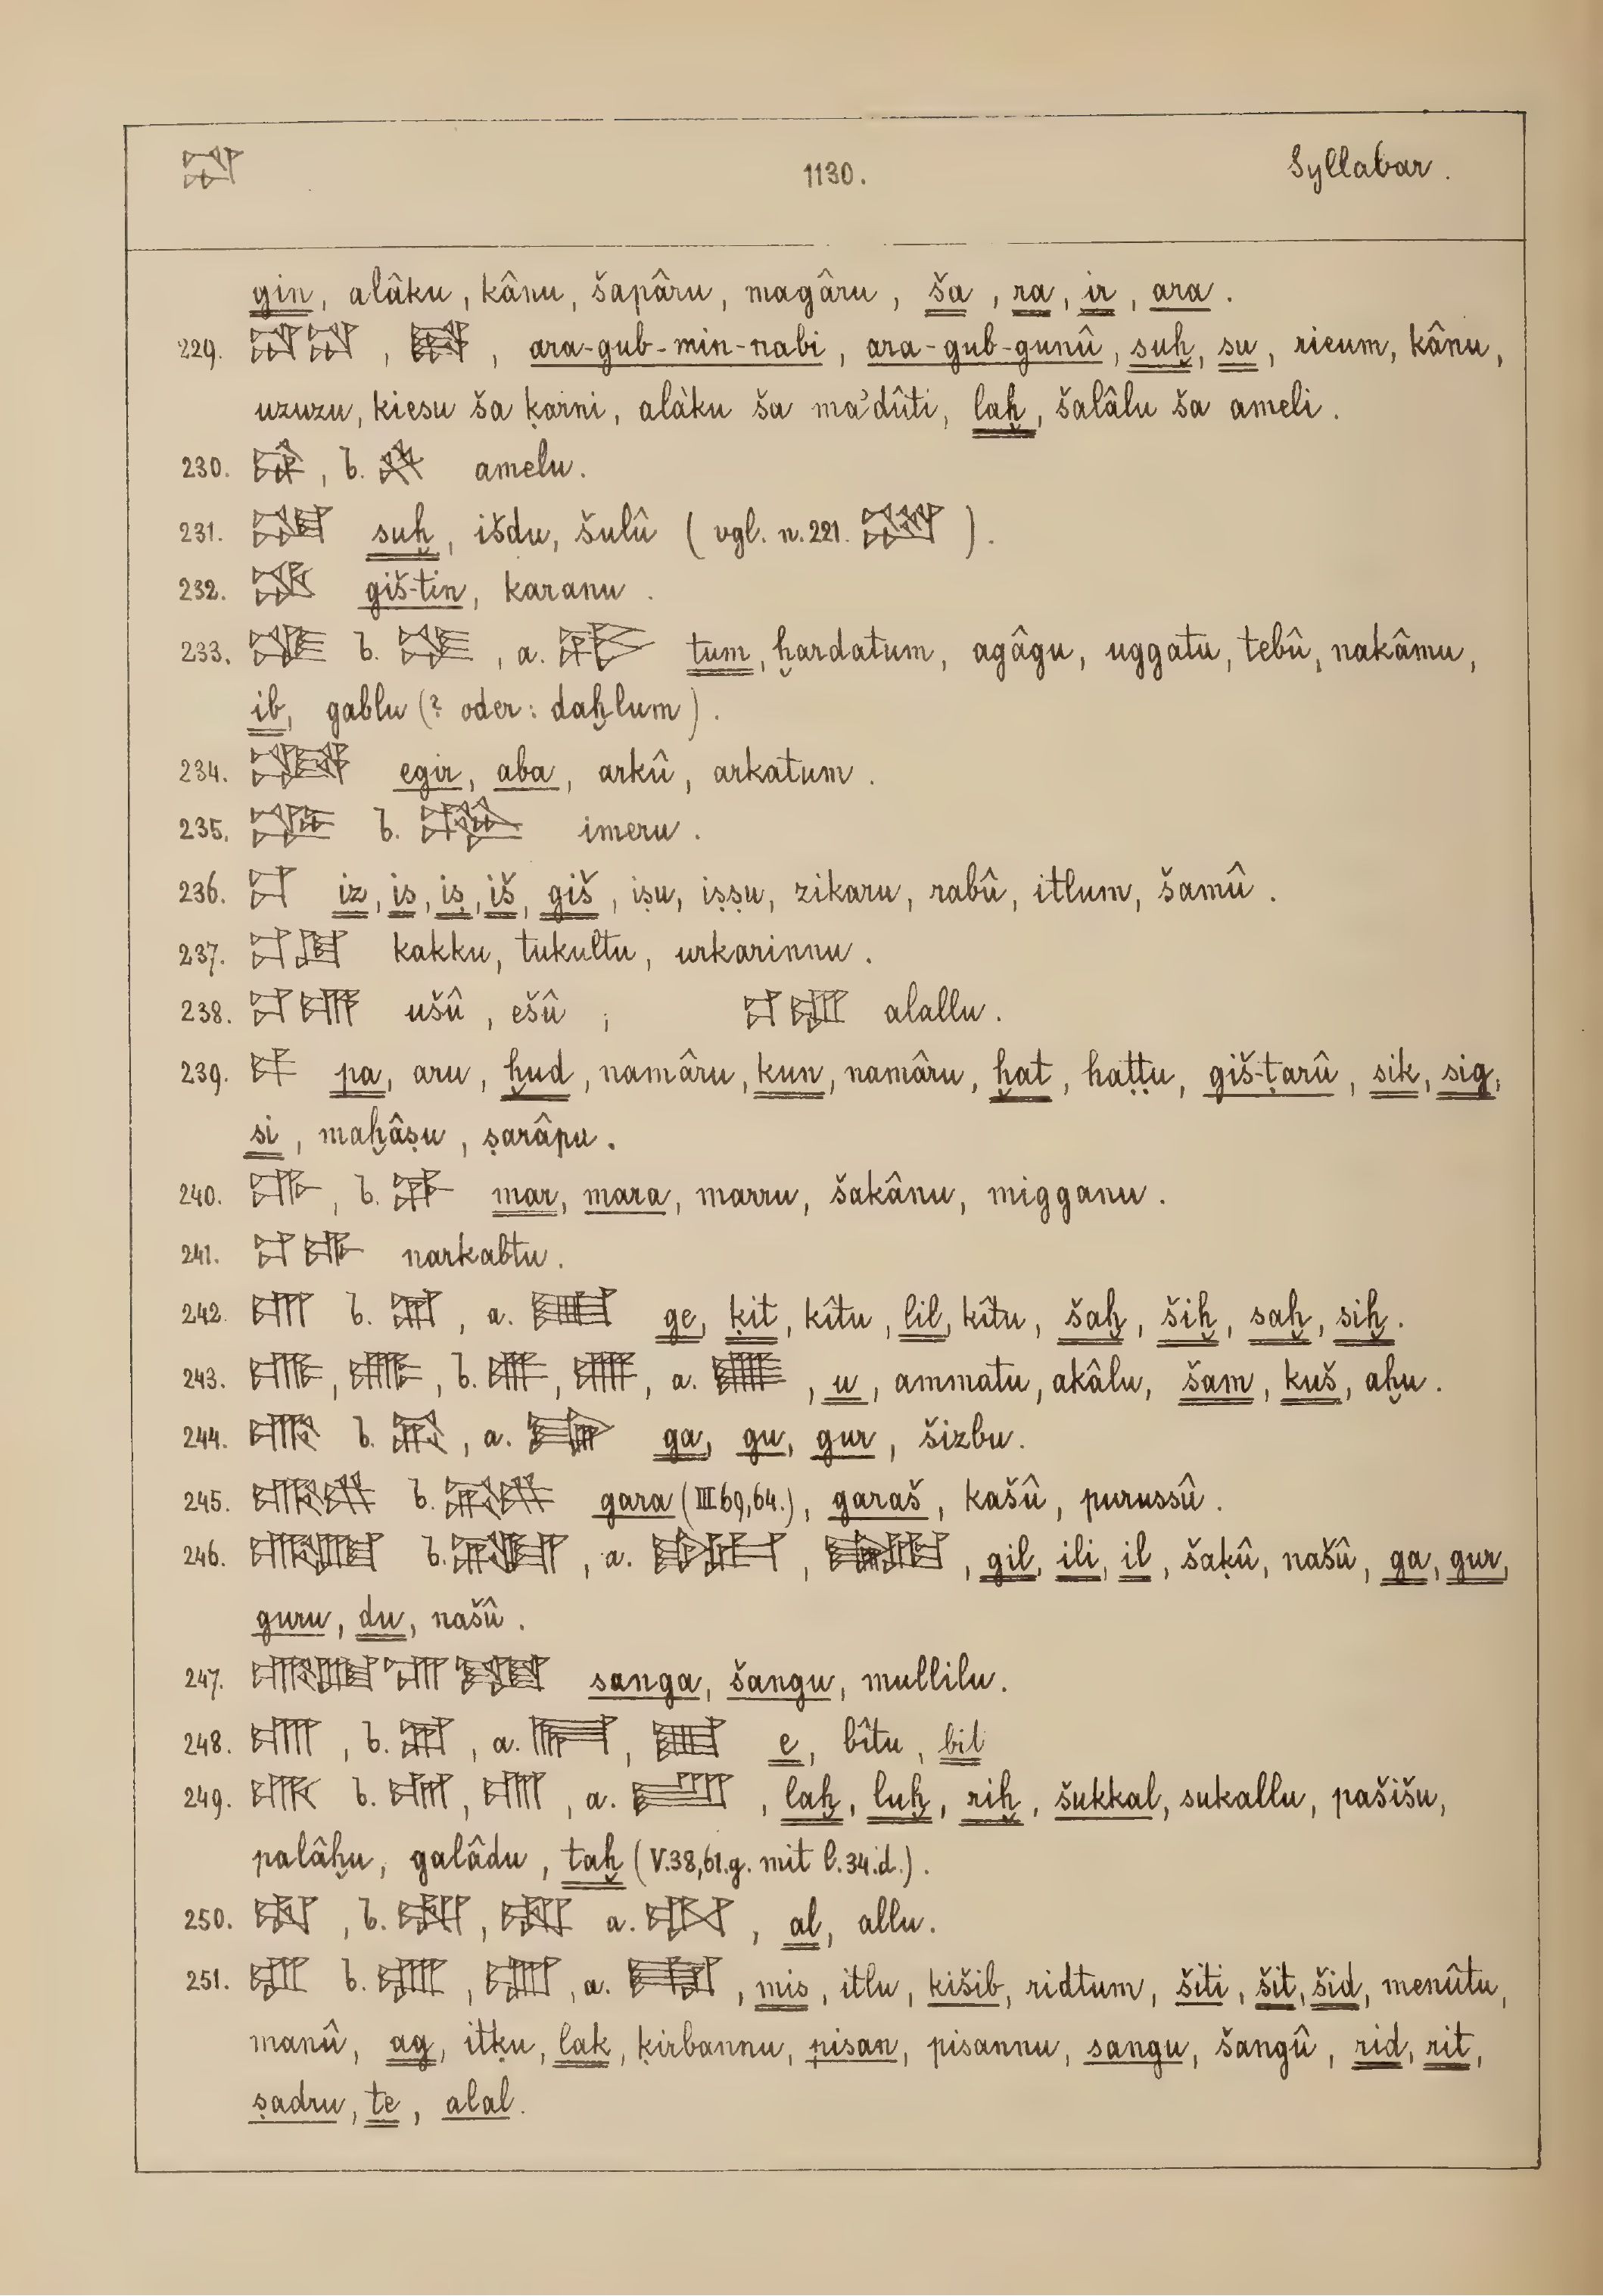 𒁺 1130. Syllabar.
gin, alâku, kânu, šapâru, magâru, ša, ra, ir, ara.
229. , , ara-gub-min-nabi, ara-gub-gunû, suḫ, su, rieum, kânu,
uzuzu, kiesu ša ḳarni, alâku ša ma'dûti, laḫ, šalâlu ša ameli.
230. , b. amelu.
231. suḫ, išdu, šulû (vgl. n. 221. ).
232. giš-tin, karanu.
233. b. , a. tum, ḫardatum, agâgu, uggatu, tebû, nakâmu,
ib, gablu (? oder: daḫlum).
234. egir, aba, arkû, arkatum.
235. b. imeru.
236. 𒄑 iz, is, iṣ, iš, giš, iṣu, iṣṣu, zikaru, rabû, itlum, šamû.
237. kakku, tukultu, urkarinnu.
238. ušû, ešû; alallu.
239. 𒉺 pa, aru, ḫud, namâru, kun, namâru, ḫat, haṭṭu, giš-ṭarû, sik, sig,
si, maḫâṣu, ṣarâpu.
240. , b. mar, mara, marru, šakânu, migganu.
241. narkabtu.
242. b. , a. ge, ḳit, kîtu, lil, kîtu, šaḫ, šiḫ, saḫ, siḫ.
243. , , b. , , a. , u, ammatu, akâlu, šam, kuš, aḫu.
244. b. , a. ga, gu, gur, šizbu.
245. b. gara (III 69,64.), garaš, kašû, purussû.
246. b. , a. , , gil, ili, il, šaḳû, našû, ga, gur,
guru, du, našû.
247. sanga, šangu, mullilu.
248. , b. , a. , e, bîtu, bit
249. b. , , a. , laḫ, luḫ, riḫ, šukkal, sukallu, pašišu,
palâḫu, galâdu, taḫ (V.38,61.g. mit l.34.d.).
250. , b. , a. , al, allu.
251. b. , , a. , mis, itlu, kišib, ridtum, šiti, šit, šid, menûtu,
manû, ag, itḳu, lak, ḳirbannu, pisan, pisannu, sangu, šangû, rid, rit,
ṣadru, te, alal.